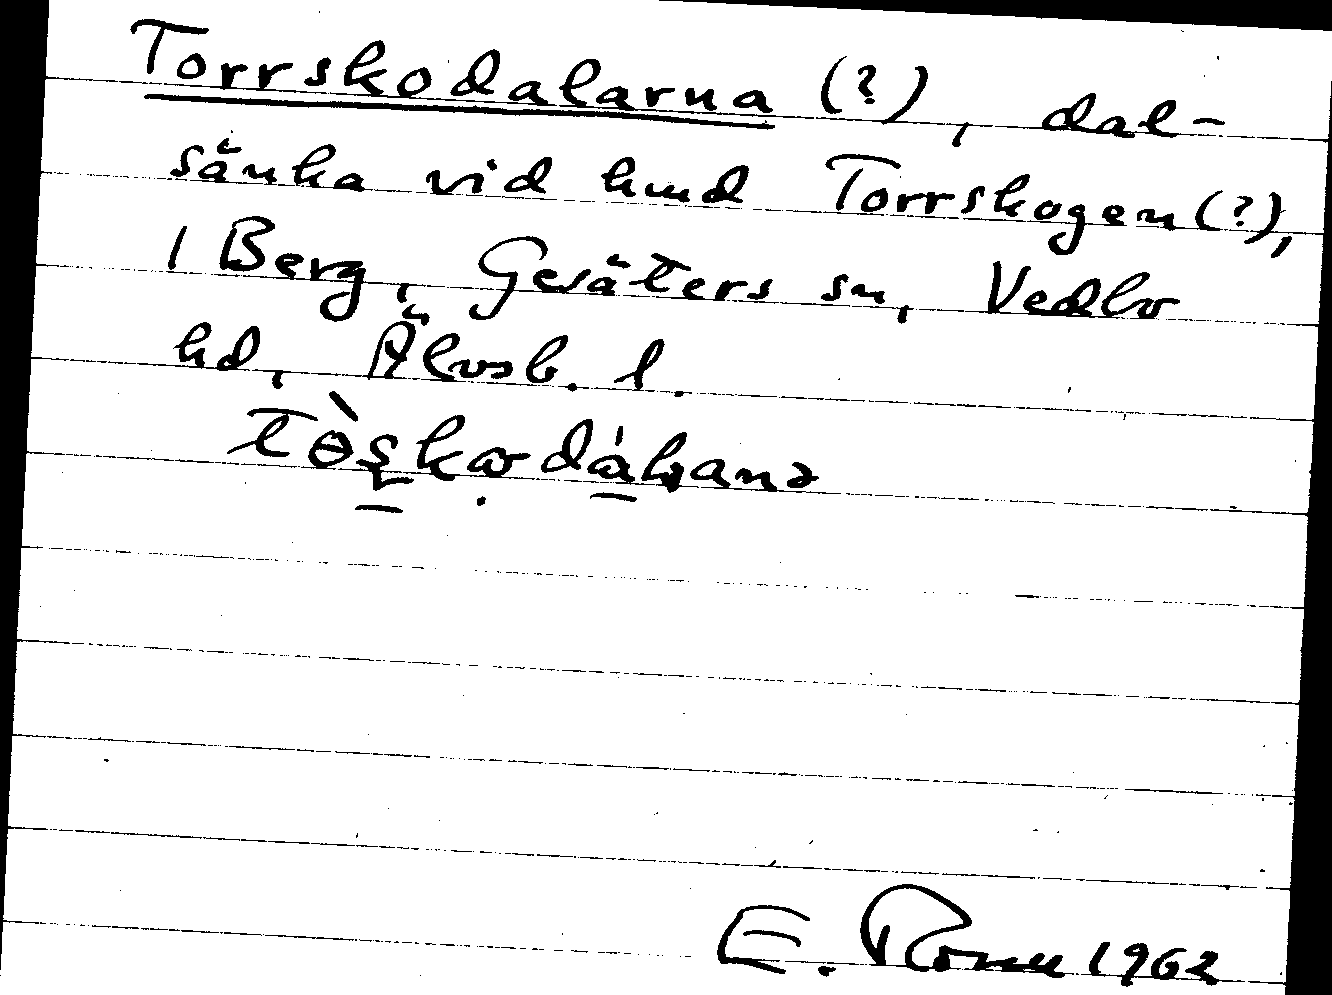 Torrskodalarna (?), dal-
sänka vid hmd Torrskogen (?),
1 Berg, Gesäters sn, Vedbo
hd, Älvsb. l.
E. 1962